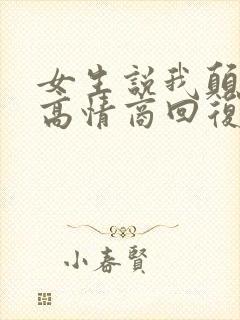 女生說我顛
高情商回復
小春賢